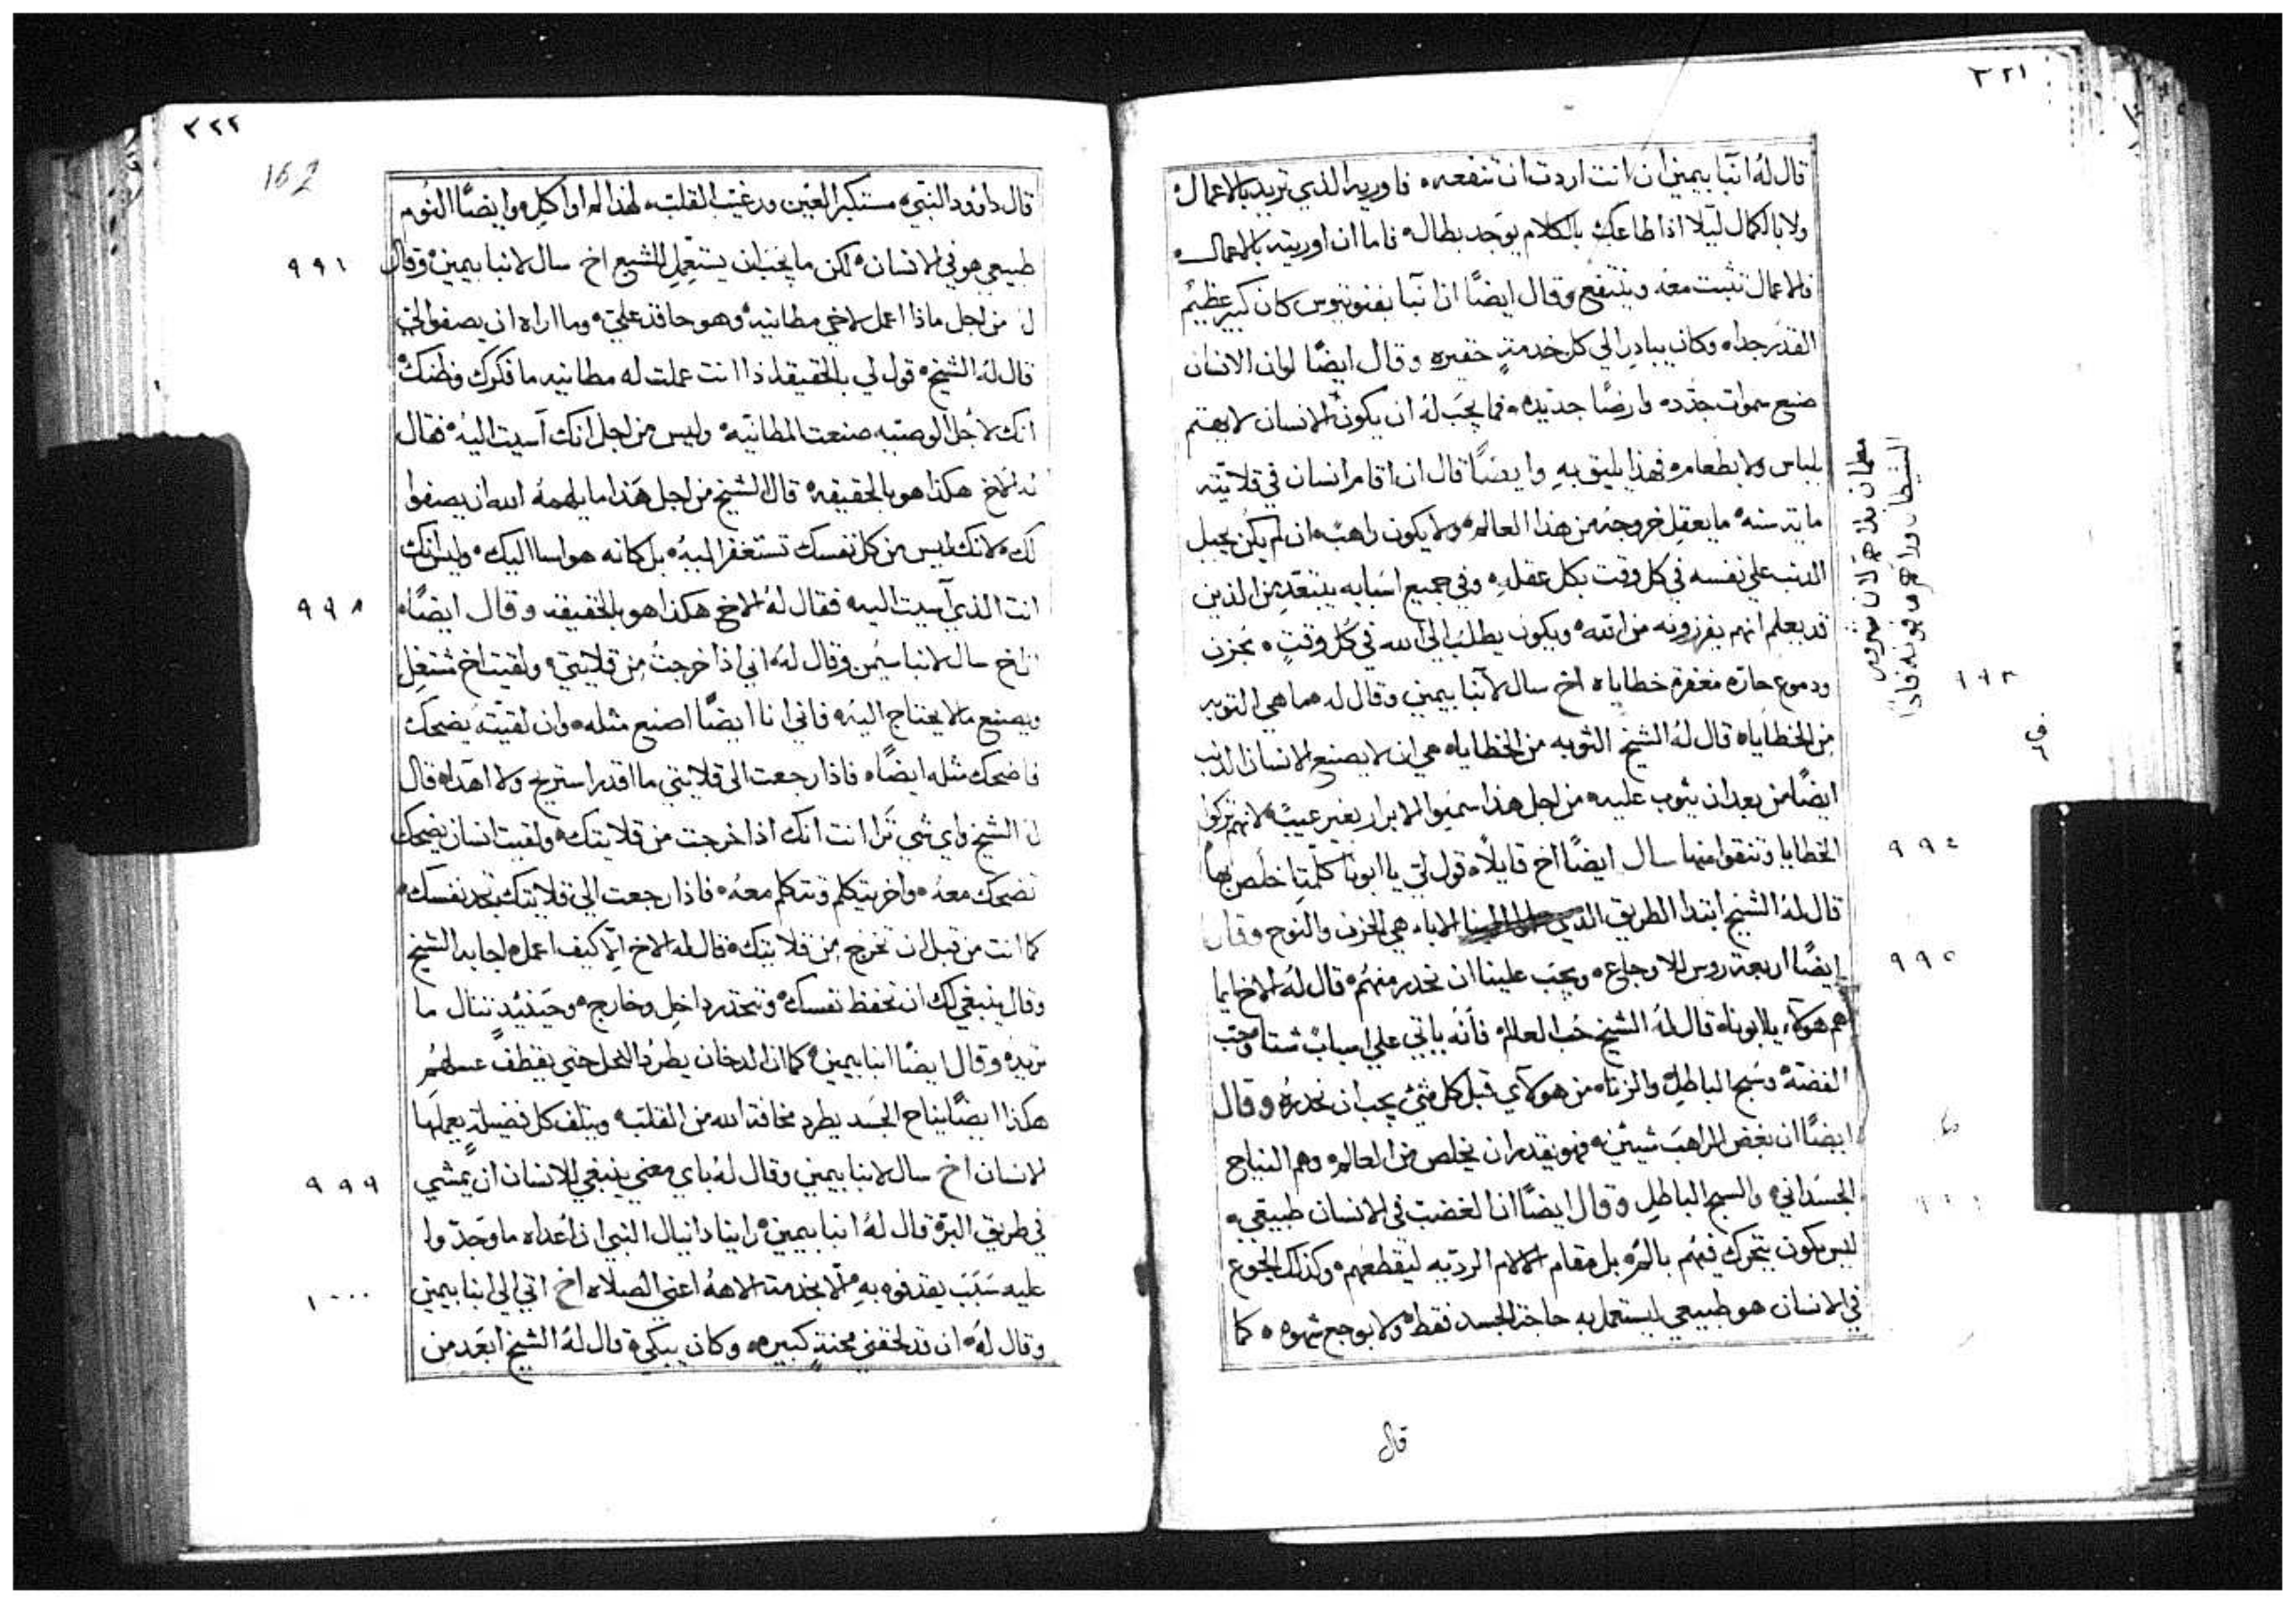 ٣٢١
قال له انبا بيمين ان انت اردت ان تنفعه فاوريه الذي تريد بالاعمال
ولا بالكمال ليلا اذا طاعك بالكلام يوجد بطاله فاما ان اوريته بالاعمال
فالاعمال تثبت معه وينتفع وقال ايضًا ان انبا بفنوتيوس كان كبير عظيم
القدر جداه وكان يبادر الي كل خدمةٍ حقيره وقال ايضًا لو ان الانسان
صنع سموات جدده وارضًا جديده فما يجب له ان يكون الانسان لا يهتم
بلباس ولا بطعام فهذا يليق به وايضًا قال ان اقام انسان في قلايته
ماية سنه ما يعقل خروجه من هذا العالم ولا يكون راهبه ان لم يكن يجبل
الذنب علي نفسه في كل وقت بكل عقله وفي جميع اسبابه يبتعد من الذين
قد يعلم انهم يفرزونه من الله ويكون يطلب الي الله في كل وقتٍ بحزن
ودموع حاره مغفرة خطاياه اخ سال لانبا بيمين وقال له ما هي التوبه
من الخطاياه قال له الشيخ التوبه من الخطاياه هي ان لا يصنع الانسان الذنب
ايضًا من بعد ان يتوب عليه من اجل هذا سميوا الابرار بغير عيب لانهم تركوا
الخطايا وتنقوا منها سال ايضًا اخ قايلًا قول لي يا ابونا كلمة اخلص بها
قال له الشيخ ابتدا الطريق الذي الاباء هي الحزن والنوح وقال
ايضًا اربعة روس الاوجاع ويجب علينا ان نحدر منهم قال له الاخ ايما
هم هولآء يا ابوناه قال له الشيخ حب العالم فانه ياتي علي اسباب شتا وحب
الفضة وسبح الباطل والزناه من هولآي قبل كل شئ يجب ان نحدره وقال
ايضًا ان بغض الراهب شيين فهو يقدر ان يخلص من العالم وهم النياح
الجسداني والسبح الباطل وقال ايضًا ان الغضب في الانسان طبيعي
ليس يكون يتحرك فيهم بالمره بل مقام الالام الرديه ليقطعهم وكذلك الجوع
في الانسان هو طبيعي ليستعمل به حاجة الجسد فقط ولا بوجع شهوه كما
قال
٩٩٣
٩٩٤
٩٩٥
٣٢٢
162
قال داوود النبي مستكبر العين ورغيب القلب لهذا لم اواكله وايضًا النوم
طبيعي هو في الانسان لكن ما يجب ان يستعمل للشبع اخ سال لانبا بيمين وقال
له من اجل ماذا اعمل لاخي مطانيه وهو حاقد علي وما اراه ان يصفوا لي
قال له الشيخ قول لي بالحقيقه اذا انت عملت له مطانيه ما فكرك وظنك
انك لاجل الوصيه صنعت المطانيه وليس من اجل انك آسيت اليه فقال
له الاخ هكذا هو بالحقيقه قال الشيخ من اجل هذا ما يلهمه الله ان يصفوا
لك لانك ليس من كل نفسك تستغفر اليه بل كانه هو اسا اليك وليس انك
انت الذي آسيت اليه فقال له الاخ هكذا هو بالحقيقه وقال ايضًا
اخ سال لانبا بيمن وقال له اني اذا خرجت من قلايتي ولقيت اخ شتغل
ويصنع ما لا يحتاج اليه فاني انا ايضًا اصنع مثله وان لقيته يضحك
فاضحك مثله ايضًا فاذا رجعت الي قلايتي ما اقدر استريح ولا اهداه قال
له الشيخ واي شي ترا انت انك اذا خرجت من قلايتك ولقيت انسان يضحك
تضحك معه واخر يتكلم وتتكلم معه فاذا رجعت الي قلايتك تجد نفسك
كما انت من قبل ان تخرج من قلايتك قال له الاخ كيف اعمل اجابه الشيخ
وقال ينبغي لك ان تحفظ نفسك وتحذر داخل وخارج وحينيد تنال ما
تريده وقال ايضًا انبا بيمين كما ان الدخان يطرد النحل حتي يقطف عسلهم
هكذا ايضًا نياح الجسد يطرد مخافة الله من القلب ويتلف كل فضيلة يعملها
الانسان اخ سال لانبا بيمين وقال له باي معني ينبغي للانسان ان يمشي
في طريق البر قال له انبا بيمين راينا دانيال النبي ان اعداه ما وجدوا
عليه سبب يقدفوه به الا بخدمة الاهه اعني الصلاه اخ اتي الي انبا بيمين
وقال له ان قد لحقني محنة كبيره وكان يبكي قال له الشيخ ابعد من
٩٩٨
٩٩٩
١٠٠٠